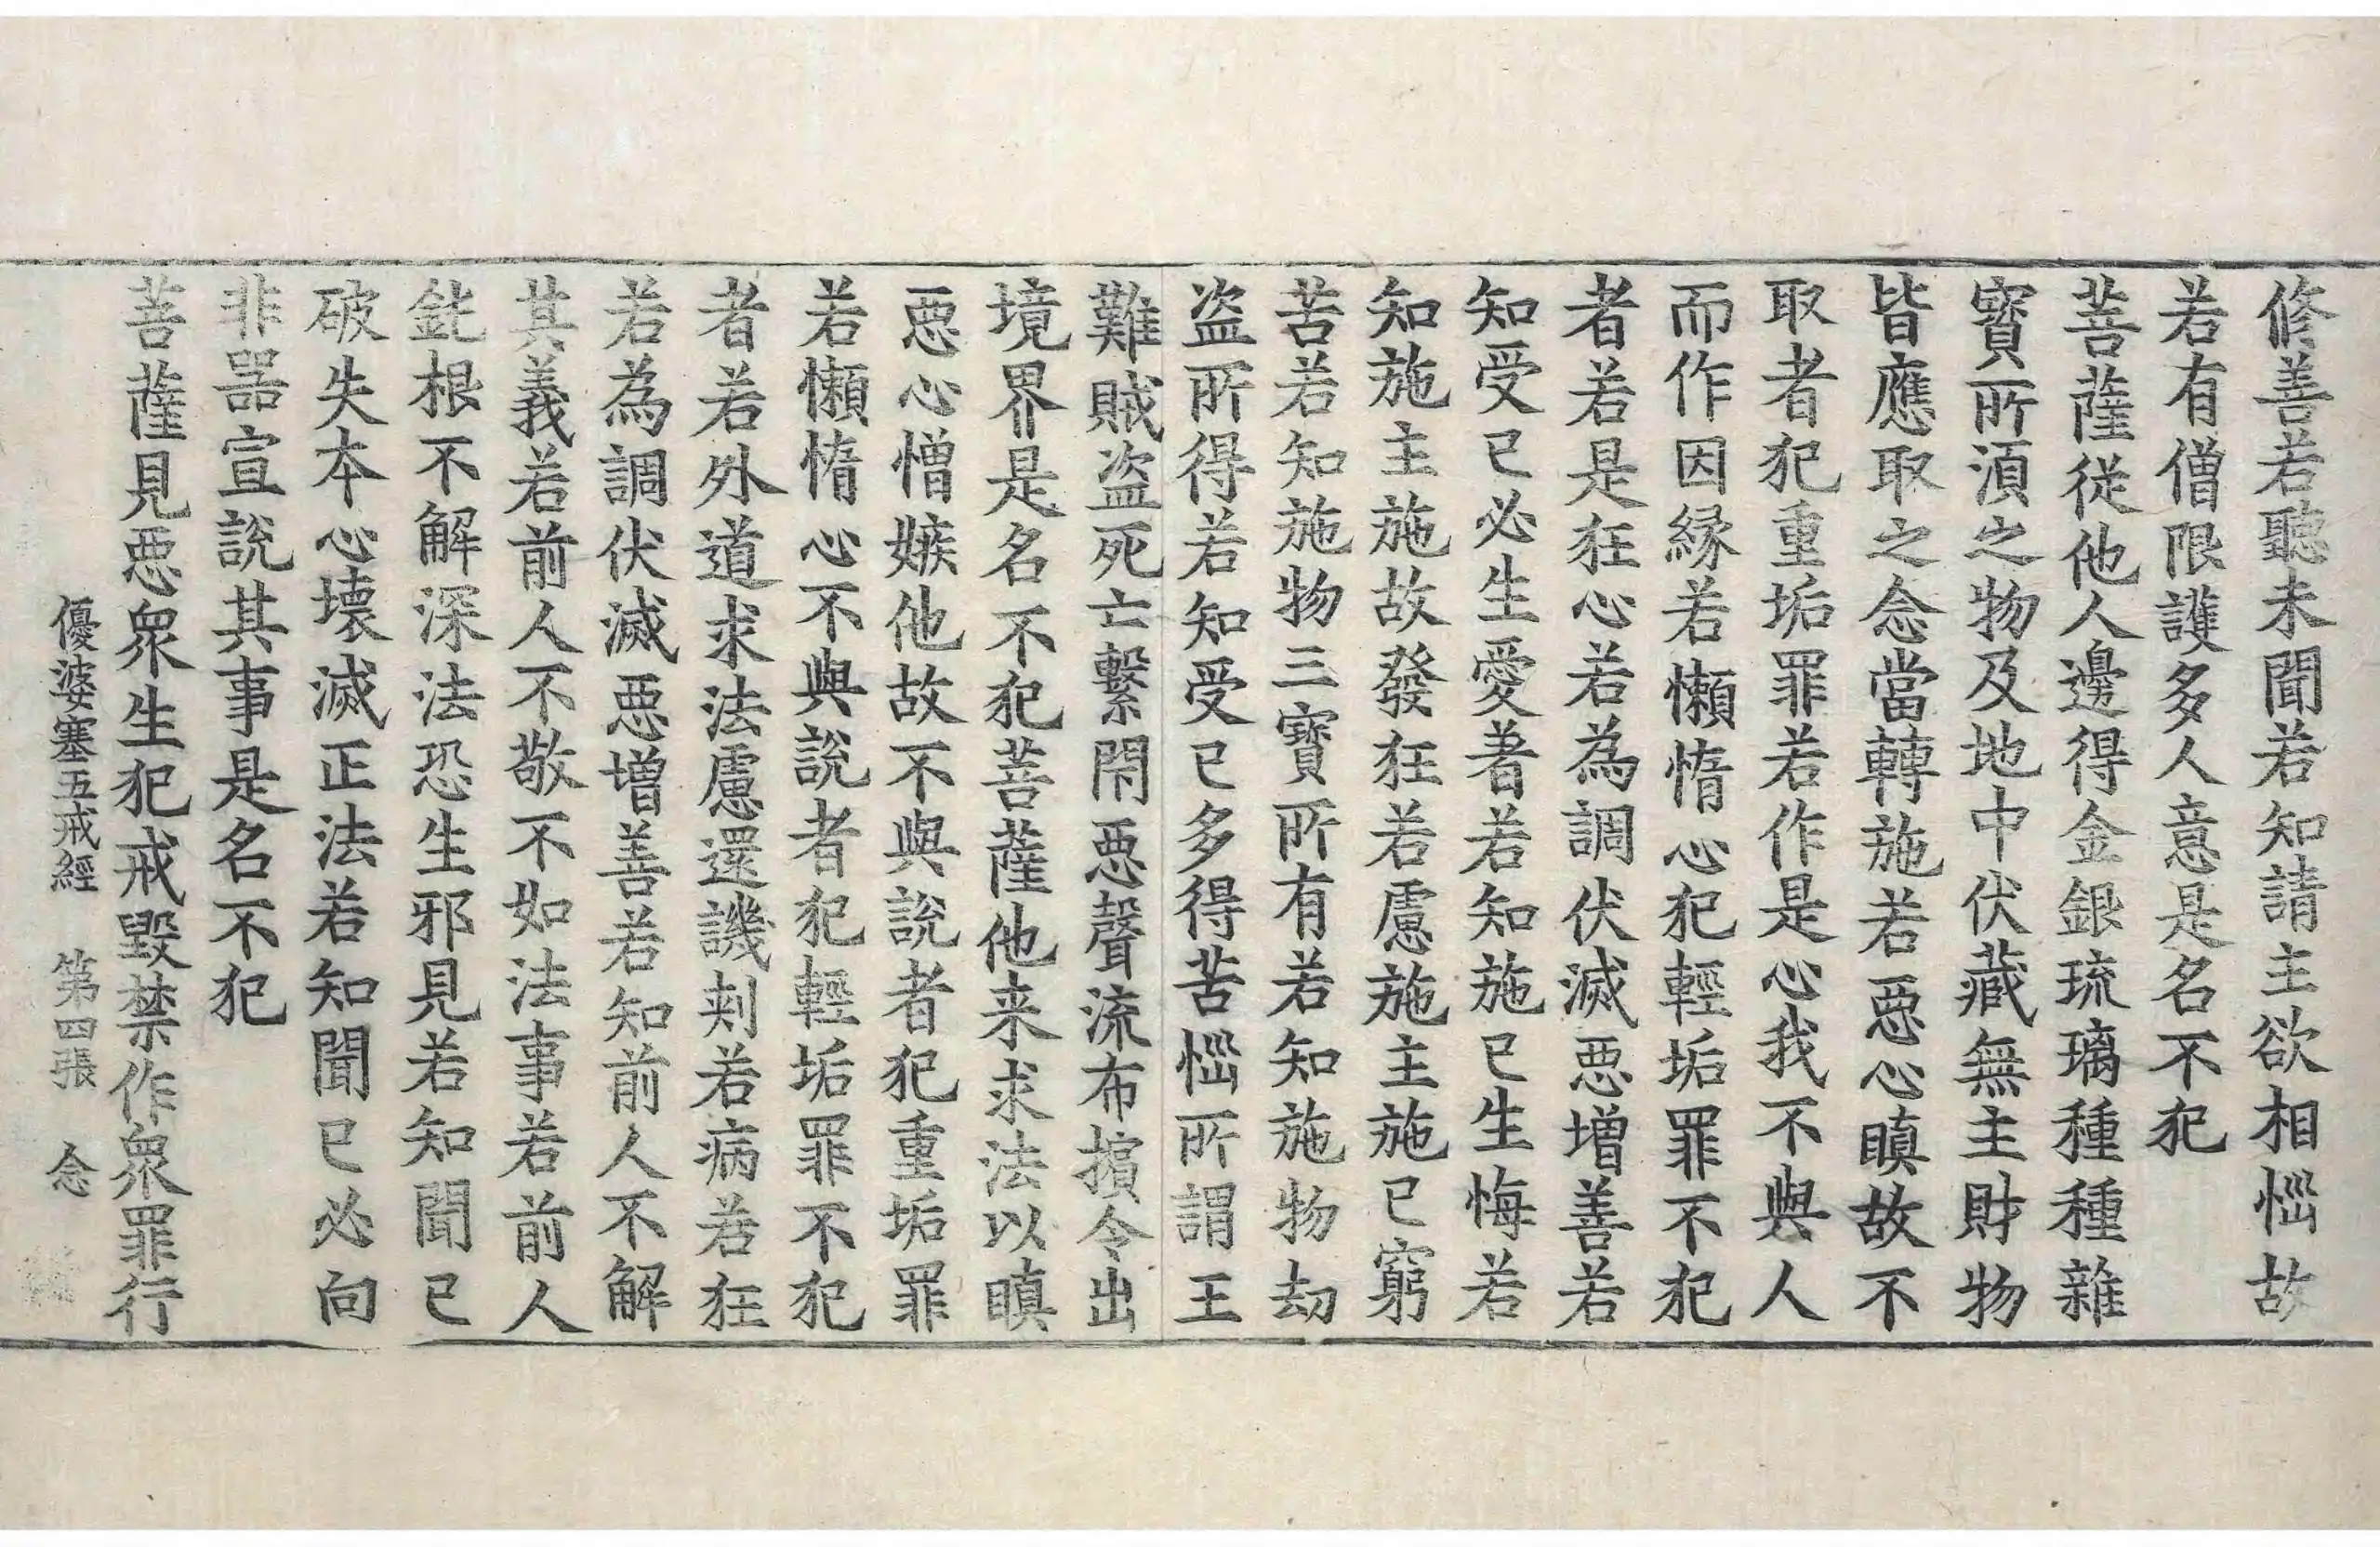 修善若聽未聞若知請主欲相惱故
若有僧限護多人意是名不犯
菩薩從他人邊得金銀琉璃種種雜
寳所湏之物及地中伏藏無主財物
皆應取之念當轉施若惡心瞋故不
取者犯重垢罪若作是心我不與人
而作因緣若懶惰心犯輕垢罪不犯
者若是狂心若為調伏滅惡增善若
知受已必生愛著若知施已生悔若
知施主施故發狂若慮施主施已窮
苦若知施物三寶所有若知施物劫
盜所得若知受已多得苦惱所謂王
難賊盜死亡繫閉惡聲流布擯令出
境界是名不犯菩薩他来求法以瞋
惡心憎嫉他故不與說者犯重垢罪
若懶惰心不與說者犯輕垢罪不犯
者若外道求法慮還譏刾若病若狂
若為調伏滅惡增善若知前人不解
其義若前人不敬不如法事若前人
鈍根不解深法恐生邪見若知聞已
破失本心壞滅正法若知聞已必向
非器宣說其事是名不犯
菩薩見惡衆生犯戒毀禁作衆罪行
優婆塞五戒經 第四張 念